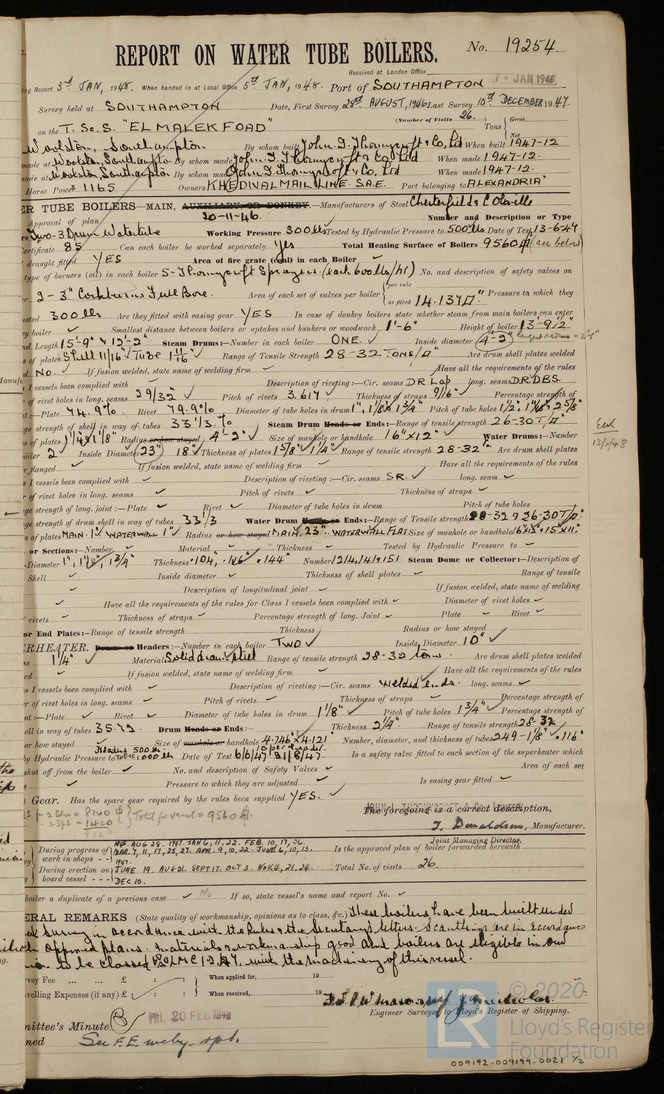 REPORT ON WATER TUBE BOILERS. No. 19254
Received at London Office JAN 1948
ing Report 3rd JAN, 1948. When handed in at Local Office 5th JAN, 1948. Port of SOUTHAMPTON
Survey held at SOUTHAMPTON Date, First Survey 28th AUGUST, 1946 Last Survey 10th DECEMBER 1947.
(Number of Visits 26.)
on the T. Sc. S. "EL MALEK FOAD" Tons { Gross Net
Woolston, Southampton. By whom built John I. Thornycroft & Co, Ltd When built 1947-12
made at Woolston, Southampton By whom made John I. Thornycroft & Co Ltd When made 1947-12.
made at Woolston Southampton By whom made John I. Thornycroft & Co, Ltd When made 1947-12.
Horse Power 1165 Owners KHEDIVAL MAIL LINE. S.A.E. Port belonging to ALEXANDRIA
ER TUBE BOILERS—MAIN, AUXILIARY OR DONKEY.—Manufacturers of Steel Chesterfields Colville
Approval of plan 20-11-46. Number and Description or Type
Two-3 Drum Watertube Working Pressure 300 lbs Tested by Hydraulic Pressure to 500 lbs Date of Test 13-6-47
ertificate 85 Can each boiler be worked separately. Yes Total Heating Surface of Boilers 9560 (see below)
draught fitted YES Area of fire grate (coal) in each Boiler
type of burners (oil) in each boiler 5-Thornycroft Sprayers (each 600 lbs/hr) No. and description of safety valves on
2-3" Cockburns Full Bore. Area of each set of valves per boiler { per rule as fitted 14.137 □." Pressure to which they
usted 300 lbs Are they fitted with easing gear YES In case of donkey boilers state whether steam from main boilers can enter
y boiler. Smallest distance between boilers or uptakes and bunkers or woodwork 1'-6" Height of boiler 13'-9½"
nd Length 15'-9" × 12'-2" Steam Drums:—Number in each boiler ONE. Inside diameter 4'-2"
s of plates Shell 11/16 Tube 1 11/16" Range of Tensile Strength 28-32 TONS/□" Are drum shell plates welded
No. If fusion welded, state name of welding firm Have all the requirements of the rules
I vessels been complied with Description of riveting:—Cir. seams DR Lap long. seams DR DBS
of rivet holes in long. seams 29/32" Pitch of rivets 3.617 Thickness of straps 9/16" Percentage strength of
:—Plate 74.9% Rivet 79.9% Diameter of tube holes in drum 1", 1⅛" & 1¾" Pitch of tube holes
ge strength of shell in way of tubes 33⅓% Steam Drum Heads or Ends:—Range of tensile strength 26-30 T/□"
s of plates Radius or how stayed 4'-2" Size of manhole or handhole 16" × 12" Water Drums:—Number
oiler 2 Inside Diameter 23" 18" Thickness of plates Range of tensile strength 28-32" Are drum shell plates
flanged If fusion welded, state name of welding firm Have all the requirements of the rules
I vessels been complied with Description of riveting:—Cir. seams SR. long. seam
of rivet holes in long. seams Pitch of rivets Thickness of straps
ge strength of long. joint:—Plate Rivet Diameter of tube holes in drum Pitch of tube holes
ge strength of drum shell in way of tubes 33⅓ Water Drum Heads or Ends:—Range of Tensile strength 28-32 & 26-30 T/□"
s of plates MAIN 1" WATERWALL 1" Radius or how stayed MAIN 23" WATERWALL FLAT Size of manhole or handhole 16"×12" × 15"×11"
or Sections:—Number Material Thickness Tested by Hydraulic Pressure to
Diameter 1", 1⅛", 1¾" Thickness .104, .116 & .144" Number Steam Dome or Collector:—Description of
Shell Inside diameter Thickness of shell plates Range of tensile
Description of longitudinal joint If fusion welded, state name of welding
Have all the requirements of the rules for Class I vessels been complied with Diameter of rivet holes
rivets Thickness of straps Percentage strength of long. Joint Plate Rivet
or End Plates:—Range of tensile strength Thickness Radius or how stayed
ERHEATER. Drums or Headers:—Number in each boiler TWO Inside Diameter 10"
1¼" Material Solid drawn steel Range of tensile strength 28-32 tons. Are drum shell plates welded
If fusion welded, state name of welding firm Have all the requirements of the rules
I vessels been complied with Description of riveting:—Cir. seams welded ends. long. seams
of rivet holes in long. seams Pitch of rivets Thickness of straps Percentage strength of
nt:—Plate Rivet Diameter of tube holes in drum 1⅛" Pitch of tube holes 1¾" Percentage strength of
ell in way of tubes 35.72 Drum Heads or Ends: Thickness 2¼" Range of tensile strength 28-32
or how stayed Size of manhole or handhole 4.746 × 4.121 Number, diameter, and thickness of tubes 249-1⅛" × .116"
by Hydraulic Pressure to Headers 500 lbs Tubes 1000 lbs Date of Test Is a safety valve fitted to each section of the superheater which
shut off from the boiler No. and description of Safety Valves Area of each set
Pressure to which they are adjusted Is easing gear fitted
Gear. Has the spare gear required by the rules been supplied YES.
Total for vessel = 9560
The foregoing is a correct description,
T. Donaldson, Manufacturer.
Joint Managing Director.
During progress of work in shops - - 1946 AUG 28. 1947. JAN 6, 11, 22. FEB. 10, 17, 26. MAR. 7, 11, 17, 25, 27. APR. 9, 10, 22. JUNE 6, 10, 13. Is the approved plan of boiler forwarded herewith
During erection on board vessel - - - 1947. JUNE 19. AUG 21. SEPT. 17. OCT 3. NOV. 4, 21, 24. DEC 10. Total No. of visits 26.
boiler a duplicate of a previous case No If so, state vessel's name and report No.
ERAL REMARKS (State quality of workmanship, opinions as to class, &c.) These boilers have been built under
al Survey in accordance with the Rules & the Secretary's letters. Scantlings are in accordance
with approved plans. Materials & workmanship good and boilers are eligible in our
to be classed LMC 12.47. with the machinery of this vessel.
rvey Fee ... ... £ : : When applied for, 19
velling Expenses (if any) £ : : When received, 19
Engineer Surveyor to Lloyd's Register of Shipping.
mittee's Minute FRI. 20 FEB 1948
ned See F.E. mchy. rpt.
13/2/48
© 2020
LR
Lloyd's Register
Foundation
009192-009199-0021 ½